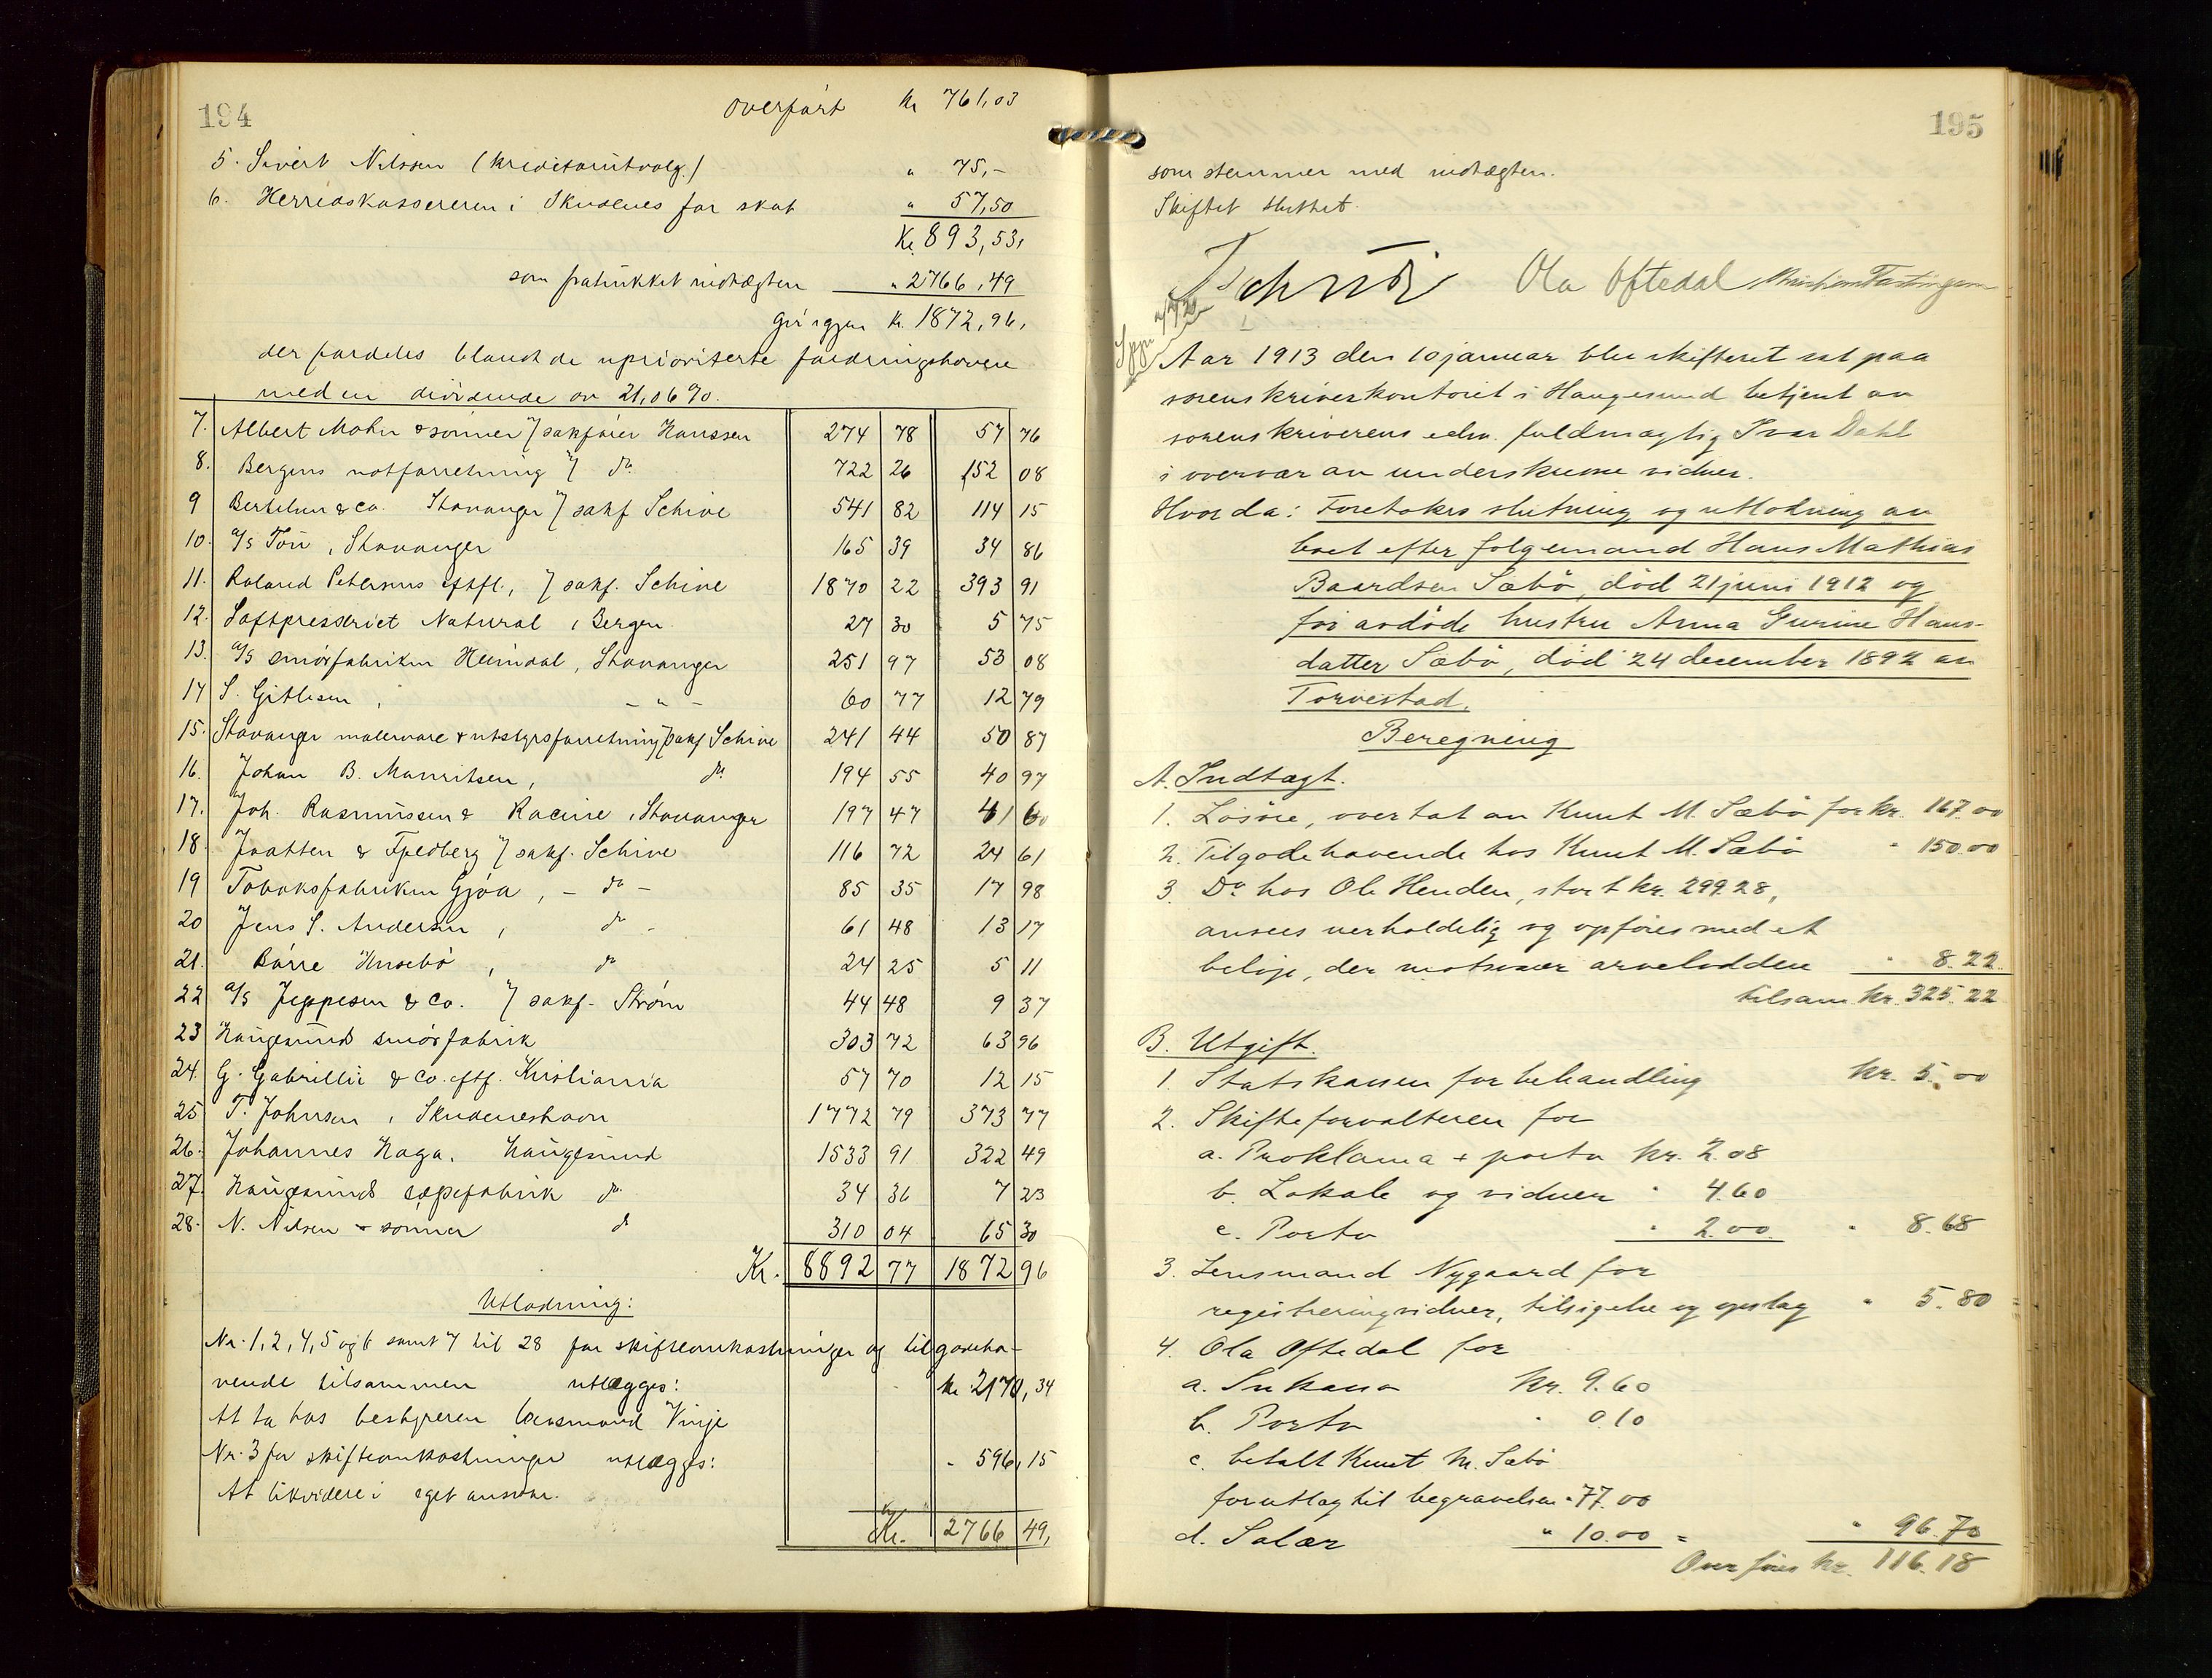 194
Overført kr 761,03
5. Sivert Nilssen (kreditorutvalg.) " 75,-
6. Herredskassereren i Skudenes for skat " 57,50
Kr. 893,53,
som fratrukket indtægten " 2766,49
Gir igjen kr. 1872,96,
der fordeles blandt de uprioriterte fordringshavere
med en dividende av 21,06 %.
7. Albert Mohn & sønner v/ sakfører Hanssen 274 78 57 76
8. Bergens notforretning v/ do 722 26 152 08
9 Bertelsen & Co. Stavanger v/ sakf Schive 541 82 114 15
10. a/s Tou, Stavanger 165 39 34 86
11. Roland Petersens eftfl., v/ sakf. Schive 1870 22 393 91
12. Saftpresseriet Natural, Bergen 27 30 5 75
13. a/s Smørfabriken Heimdal, Stavanger 251 97 53 08
14 S. Gitlesen, - " - 60 77 12 79
15. Stavanger malervare & utstyrsforretning v/ sakf Schive 241 44 50 87
16. Johan B. Mauritsen, do 194 55 40 97
17. Joh. Rasmussen & Racine, Stavanger 197 47 41 60
18. Jaatten & Fjedberg v/ sakf. Schive 116 72 24 61
19 Tobaksfabriken Gjøa, - do - 85 35 17 98
20 Jens S. Andersen, do - 61 48 13 17
21. Børre Husebø, do 24 25 5 11
22 a/s Jeppesen & Co. v/ sakf. Strøm 44 48 9 37
23 Haugesunds smørfabrik 303 72 63 96
24. G. Gabrielli & Co. eftf. Kristiania 57 70 12 15
25 T. Johnsen, Skudeneshavn 1772 79 373 77
26. Johannes Haga. Haugesund 1533 91 322 49
27. Haugesunds sæpefabrik do 34 36 7 23
28. N. Nilsen & sønner do 310 04 65 30
Kr. 8892 77 1872 96
Utlodning:
Nr. 1, 2, 4, 5 og 6 samt 7 til 28 for skifteomkostninger og tilgodeha-
vende tilsammen utlægges: kr 2170,34
At ta hos bestyreren lensmand Vinje
Nr. 3 for skifteomkostninger utlægges: " 596,15
At likvidere i eget ansvar.
Kr. 2766 49,
195
som stemmer med indtægten.
Skiftet sluttet.
Ola Oftedal
Aar 1913 den 10 januar blev skifteret sat paa
sorenskriverkontoret i Haugesund betjent av
sorenskriverens edsv. fuldmægtig Ivar Dahl
i overvær av underskrevne vidner.
Hvorda: Foretokes slutning og utlodning av
boet efter følgemand Hans Mathias
Baardsen Sæbø, død 21 juni 1912 og
før avdøde hustru Anna Gurine Hans-
datter Sæbø, død 24 december 1892 av
Torvestad.
Beregning
A. Indtægt.
1. Løsøre, overtat av Knut M. Sæbø for kr. 167.00
2. Tilgodehavende hos Knut M. Sæbø " 150.00
3. Do hos Ole Henden, stort kr. 299.28,
ansees uerholdelig og opføres med et
beløp, der motsvarer arvelodden " 8.22.
tilsam. kr. 325.22
B. Utgift.
1. Statskassen for behandling kr. 5.00
2. Skifteforvalteren for
a. Proklama + porto kr. 2.08
b. Lokale og vidner " 4.60
c. Porto " 2.00. " 8.68
3. Lensmand Nygaard for
registreringvidner, tilsigelse og opslag " 5.80
4. Ola Oftedal for
a. Inkasso kr. 9.60
b. Porto " 0.10
c. betalt Knut M. Sæbø
for utlæg til begravelsen " 77.00
d. Salær " 10.00 = " 96.70
Overføres kr. 116.18